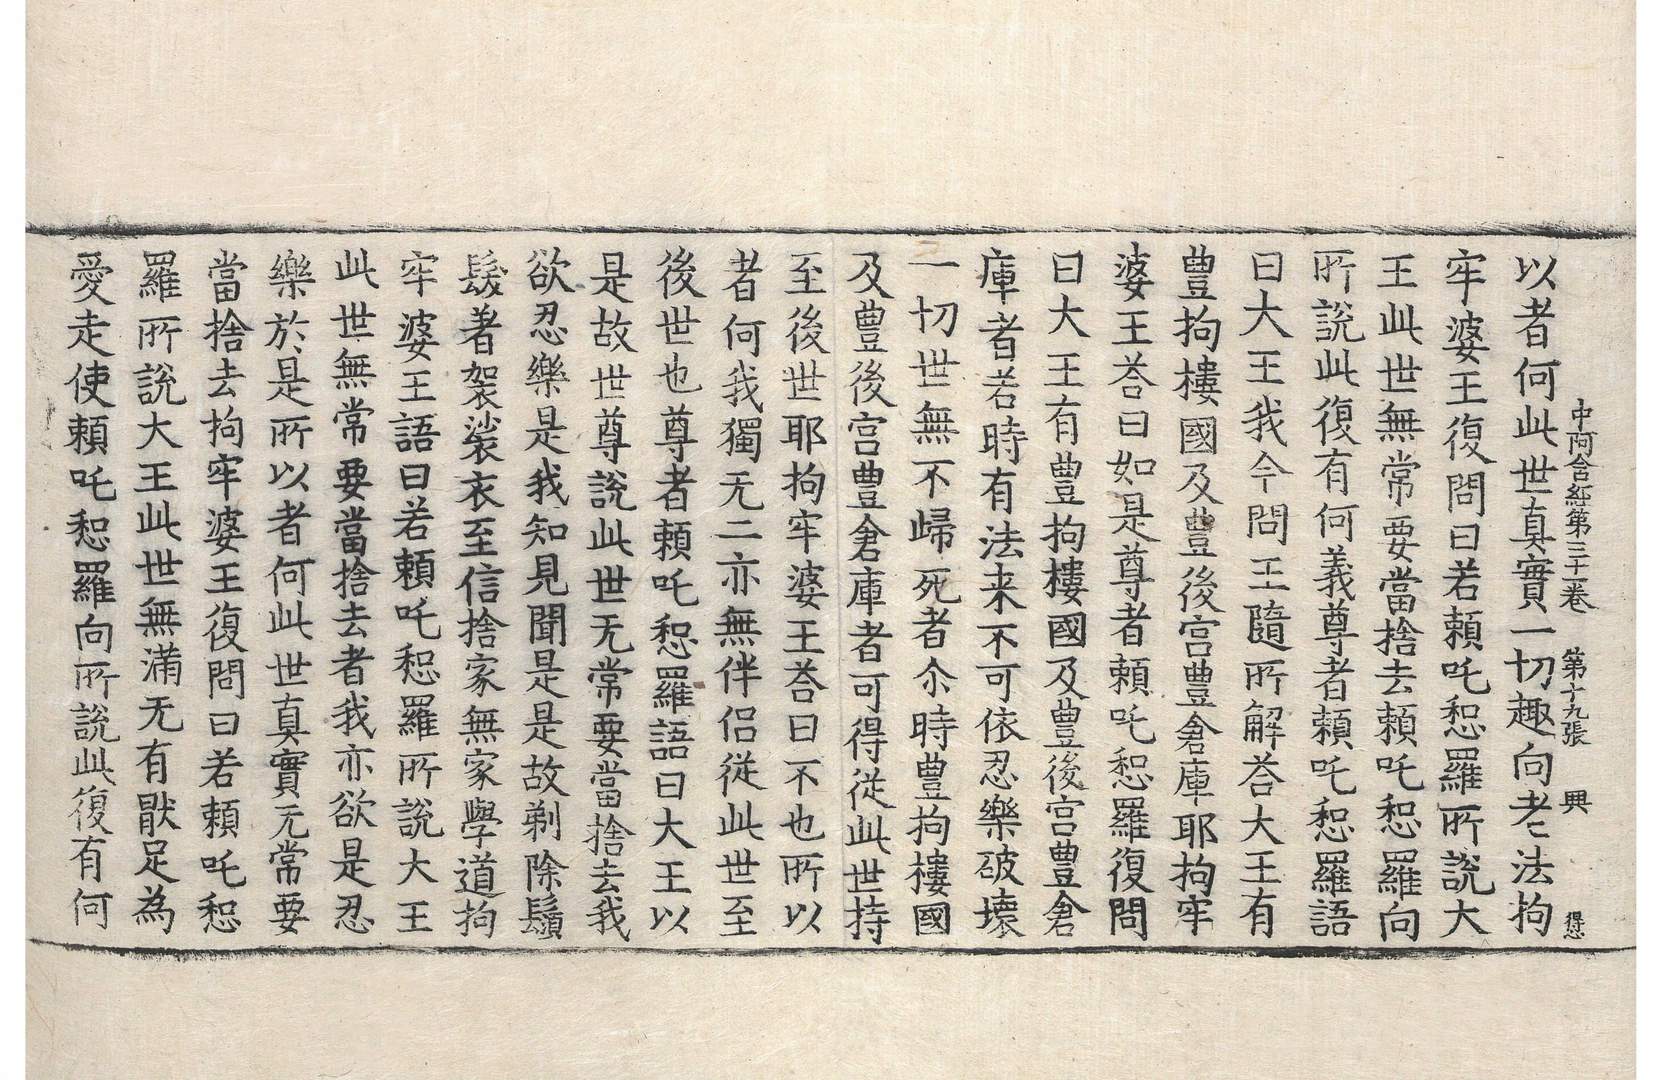 中阿含經第三十一卷 第十九張 興 得㤙
以者何此世真實一切趣向老法拘
牢婆王復問曰若賴吒惒羅所說大
王此世無常要當捨去賴吒惒羅向
所說此復有何義尊者賴吒惒羅語
曰大王我今問王隨所解荅大王有
豊拘樓國及豊後宮豊倉庫耶拘牢
婆王荅曰如是尊者賴吒惒羅復問
曰大王有豊拘樓國及豊後宮豊倉
庫者若時有法来不可依忍樂破壞
一切世無不歸死者尒時豊拘樓國
及豊後宮豊倉庫者可得從此世持
至後世耶拘牢婆王荅曰不也所以
者何我獨无二亦無伴侶從此世至
後世也尊者賴吒惒羅語曰大王以
是故世尊說此世无常要當捨去我
欲忍樂是我知見聞是是故剃除鬚
髮著袈裟衣至信捨家無家學道拘
牢婆王語曰若賴吒惒羅所說大王
此世無常要當捨去者我亦欲是忍
樂於是所以者何此世真實无常要
當捨去拘牢婆王復問曰若賴吒惒
羅所說大王此世無滿无有猒足為
愛走使賴吒惒羅向所說此復有何